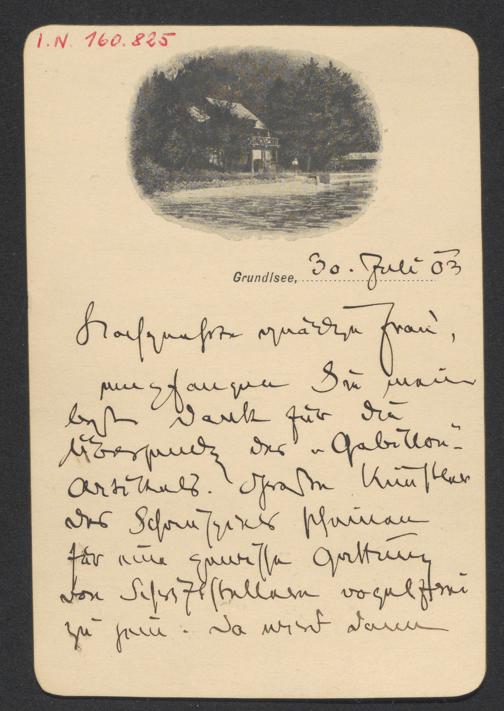 I.N. 160.825
Grundlsee, 30. Juli 03
Hochgeehrte gnädige Frau,
empfangen Sie meinen
besten Dank für die
Übersendung des „Gabillon"-
Artikels. Große Künstler
des Schauspiels scheinen
für eine gewisse Gattung
von Schriftstellern vogelfrei
zu sein. Da wird dann